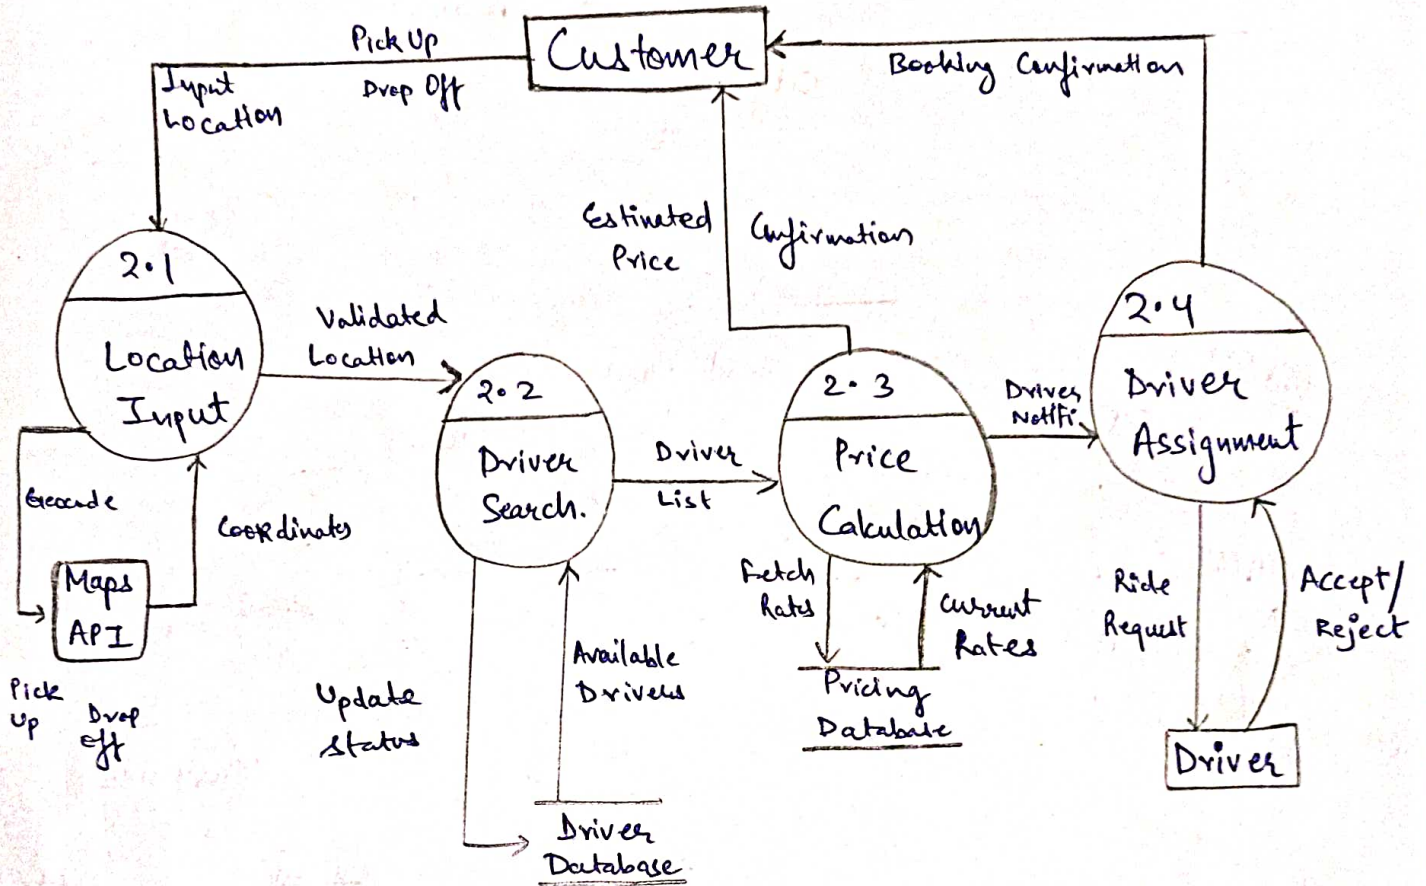 Customer
Pick Up
Drop Off
Input
Location
Booking Confirmation
Estimated
Price
Confirmation
2.1
Location
Input
Validated
Location
2.2
Driver
Search.
Driver
List
2.3
Price
Calculation
Driver
Notifi.
2.4
Driver
Assignment
Geocode
Coordinates
Maps
API
Pick
Up
Drop
Off
Update
Status
Available
Drivers
Driver
Database
Fetch
Rates
Current
Rates
Pricing
Database
Ride
Request
Accept/
Reject
Driver